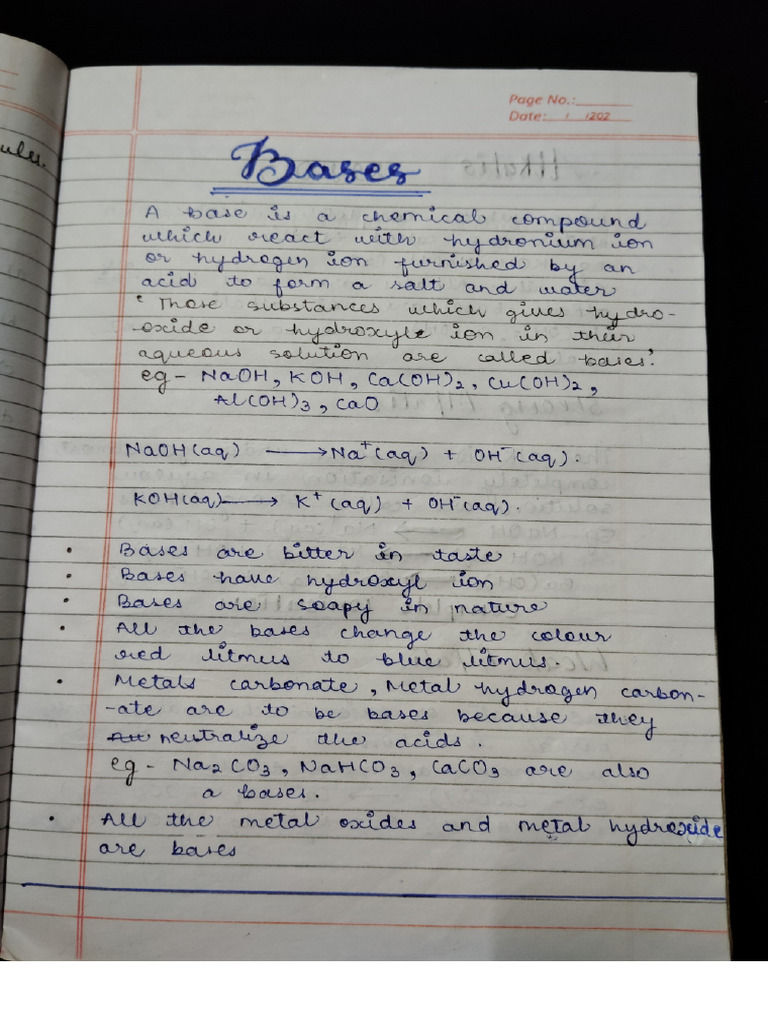 Page No.:
Date: / /202
ules.
Bases
A base is a chemical compound
which react with hydronium ion
or hydrogen ion furnished by an
acid to form a salt and water
' Those substances which gives hydro-
-oxide or hydroxyle ion in their
aqueous solution are called bases'.
eg - NaOH, KOH, Ca(OH)2, Cu(OH)2,
Al(OH)3, CaO
NaOH(aq) ⟶ Na⁺(aq) + OH⁻(aq).
KOH(aq) ⟶ K⁺(aq) + OH⁻(aq).
• Bases are bitter in taste
• Bases have hydroxyl ion
• Bases are soapy in nature
• All the bases change the colour
red litmus to blue litmus.
• Metals carbonate, Metal hydrogen carbon-
-ate are to be bases because they
neutralize the acids.
eg - Na2CO3, NaHCO3, CaCO3 are also
a bases.
• All the metal oxides and metal hydroxide
are bases